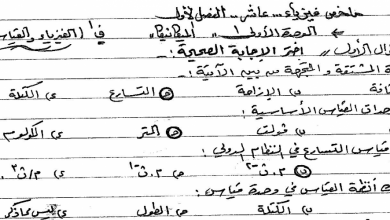 ملخص فيزياء .. عاشر .. الفصل الأول
← الوحدة الأولى 1 " الميكانيكا " ف1 (الفيزياء والقياس
ال الأول // اختر الإجابة الصحيحة :-
ة المشتقة والمتجهة من بين الآتية :-
ن الإزاحة ه التسارع ي الكتلة
حدات القياس الأساسية :
ن فولت ه المتر ي الكولوم
قياس التسارع في النظام الدولي :
ن م.ث⁻² ه م.ث⁻¹ ي م/ث³
أنظمة القياس في وحدة قياس :
ن الكتلة ه الطول ي ليس مما ذكر